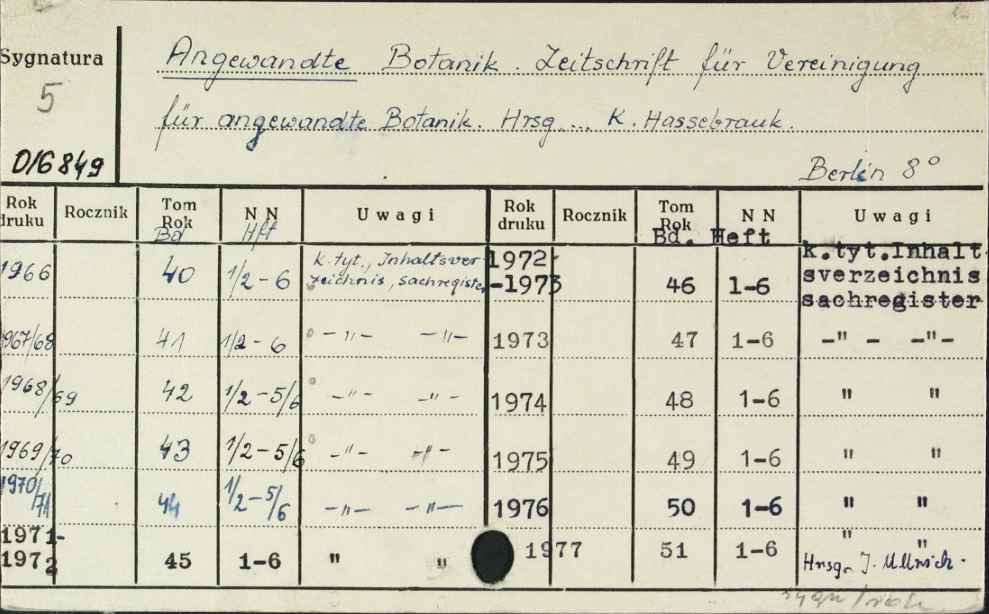 Sygnatura
5
D/6849
Angewandte Botanik. Zeitschrift für Vereinigung
für angewandte Botanik. Hrsg ... K. Hassebrauk.
Berlin 8°
Rok druku Rocznik Tom Rok Bd N N Hft Uwagi Rok druku Rocznik Tom Rok Bd. N N Heft Uwagi
1966 40 1/2-6 k. tyt., Inhaltsver-
zeichnis, sachregister
1967/68 41 1/2-6 -"- -"-
1968/69 42 1/2-5/6 -"- -"-
1969/70 43 1/2-5/6 -"- -"-
1970/71 44 1/2-5/6 -"- -"-
1971-
1972 45 1-6 " "
1972-
-1973 46 1-6 k.tyt.Inhalt
sverzeichnis
sachregister
1973 47 1-6 -" - -"-
1974 48 1-6 " "
1975 49 1-6 " "
1976 50 1-6 " "
1977 51 1-6 " "
Hrsg. J. Ullrich.